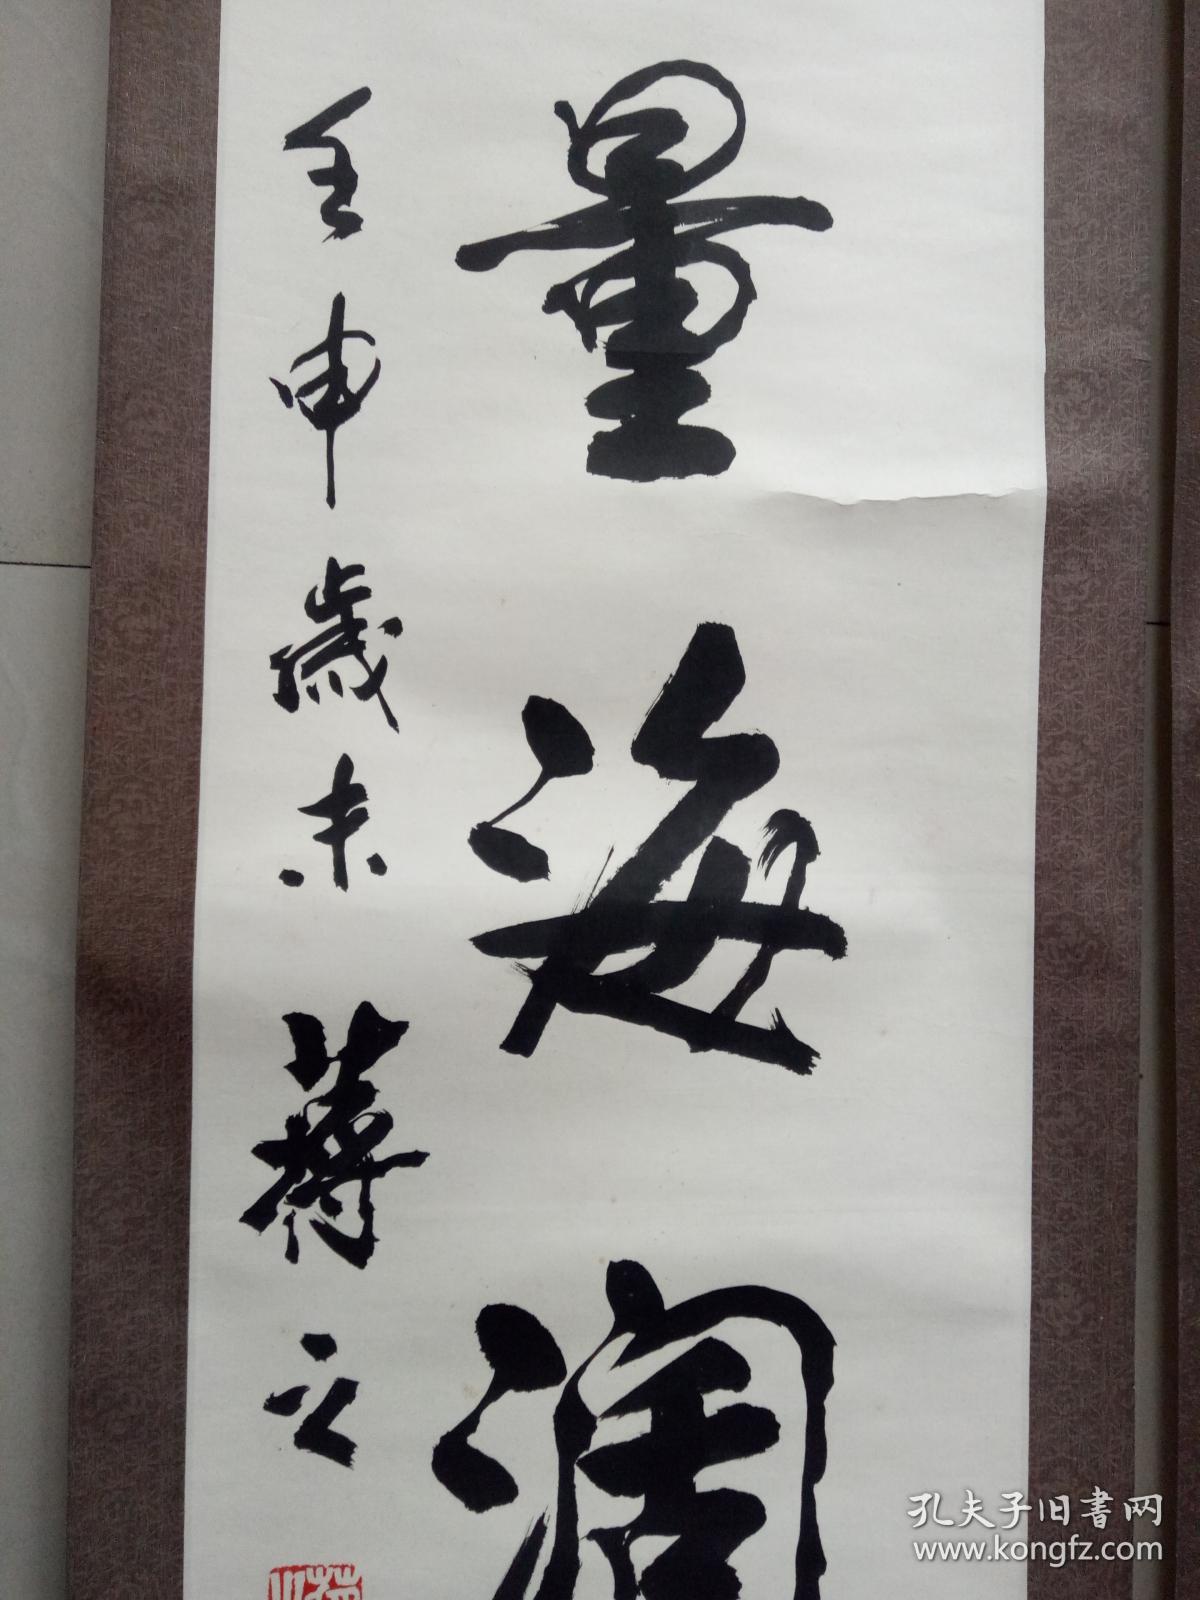 量海润
壬申岁末 荐之
孔夫子旧书网
www.kongfz.com